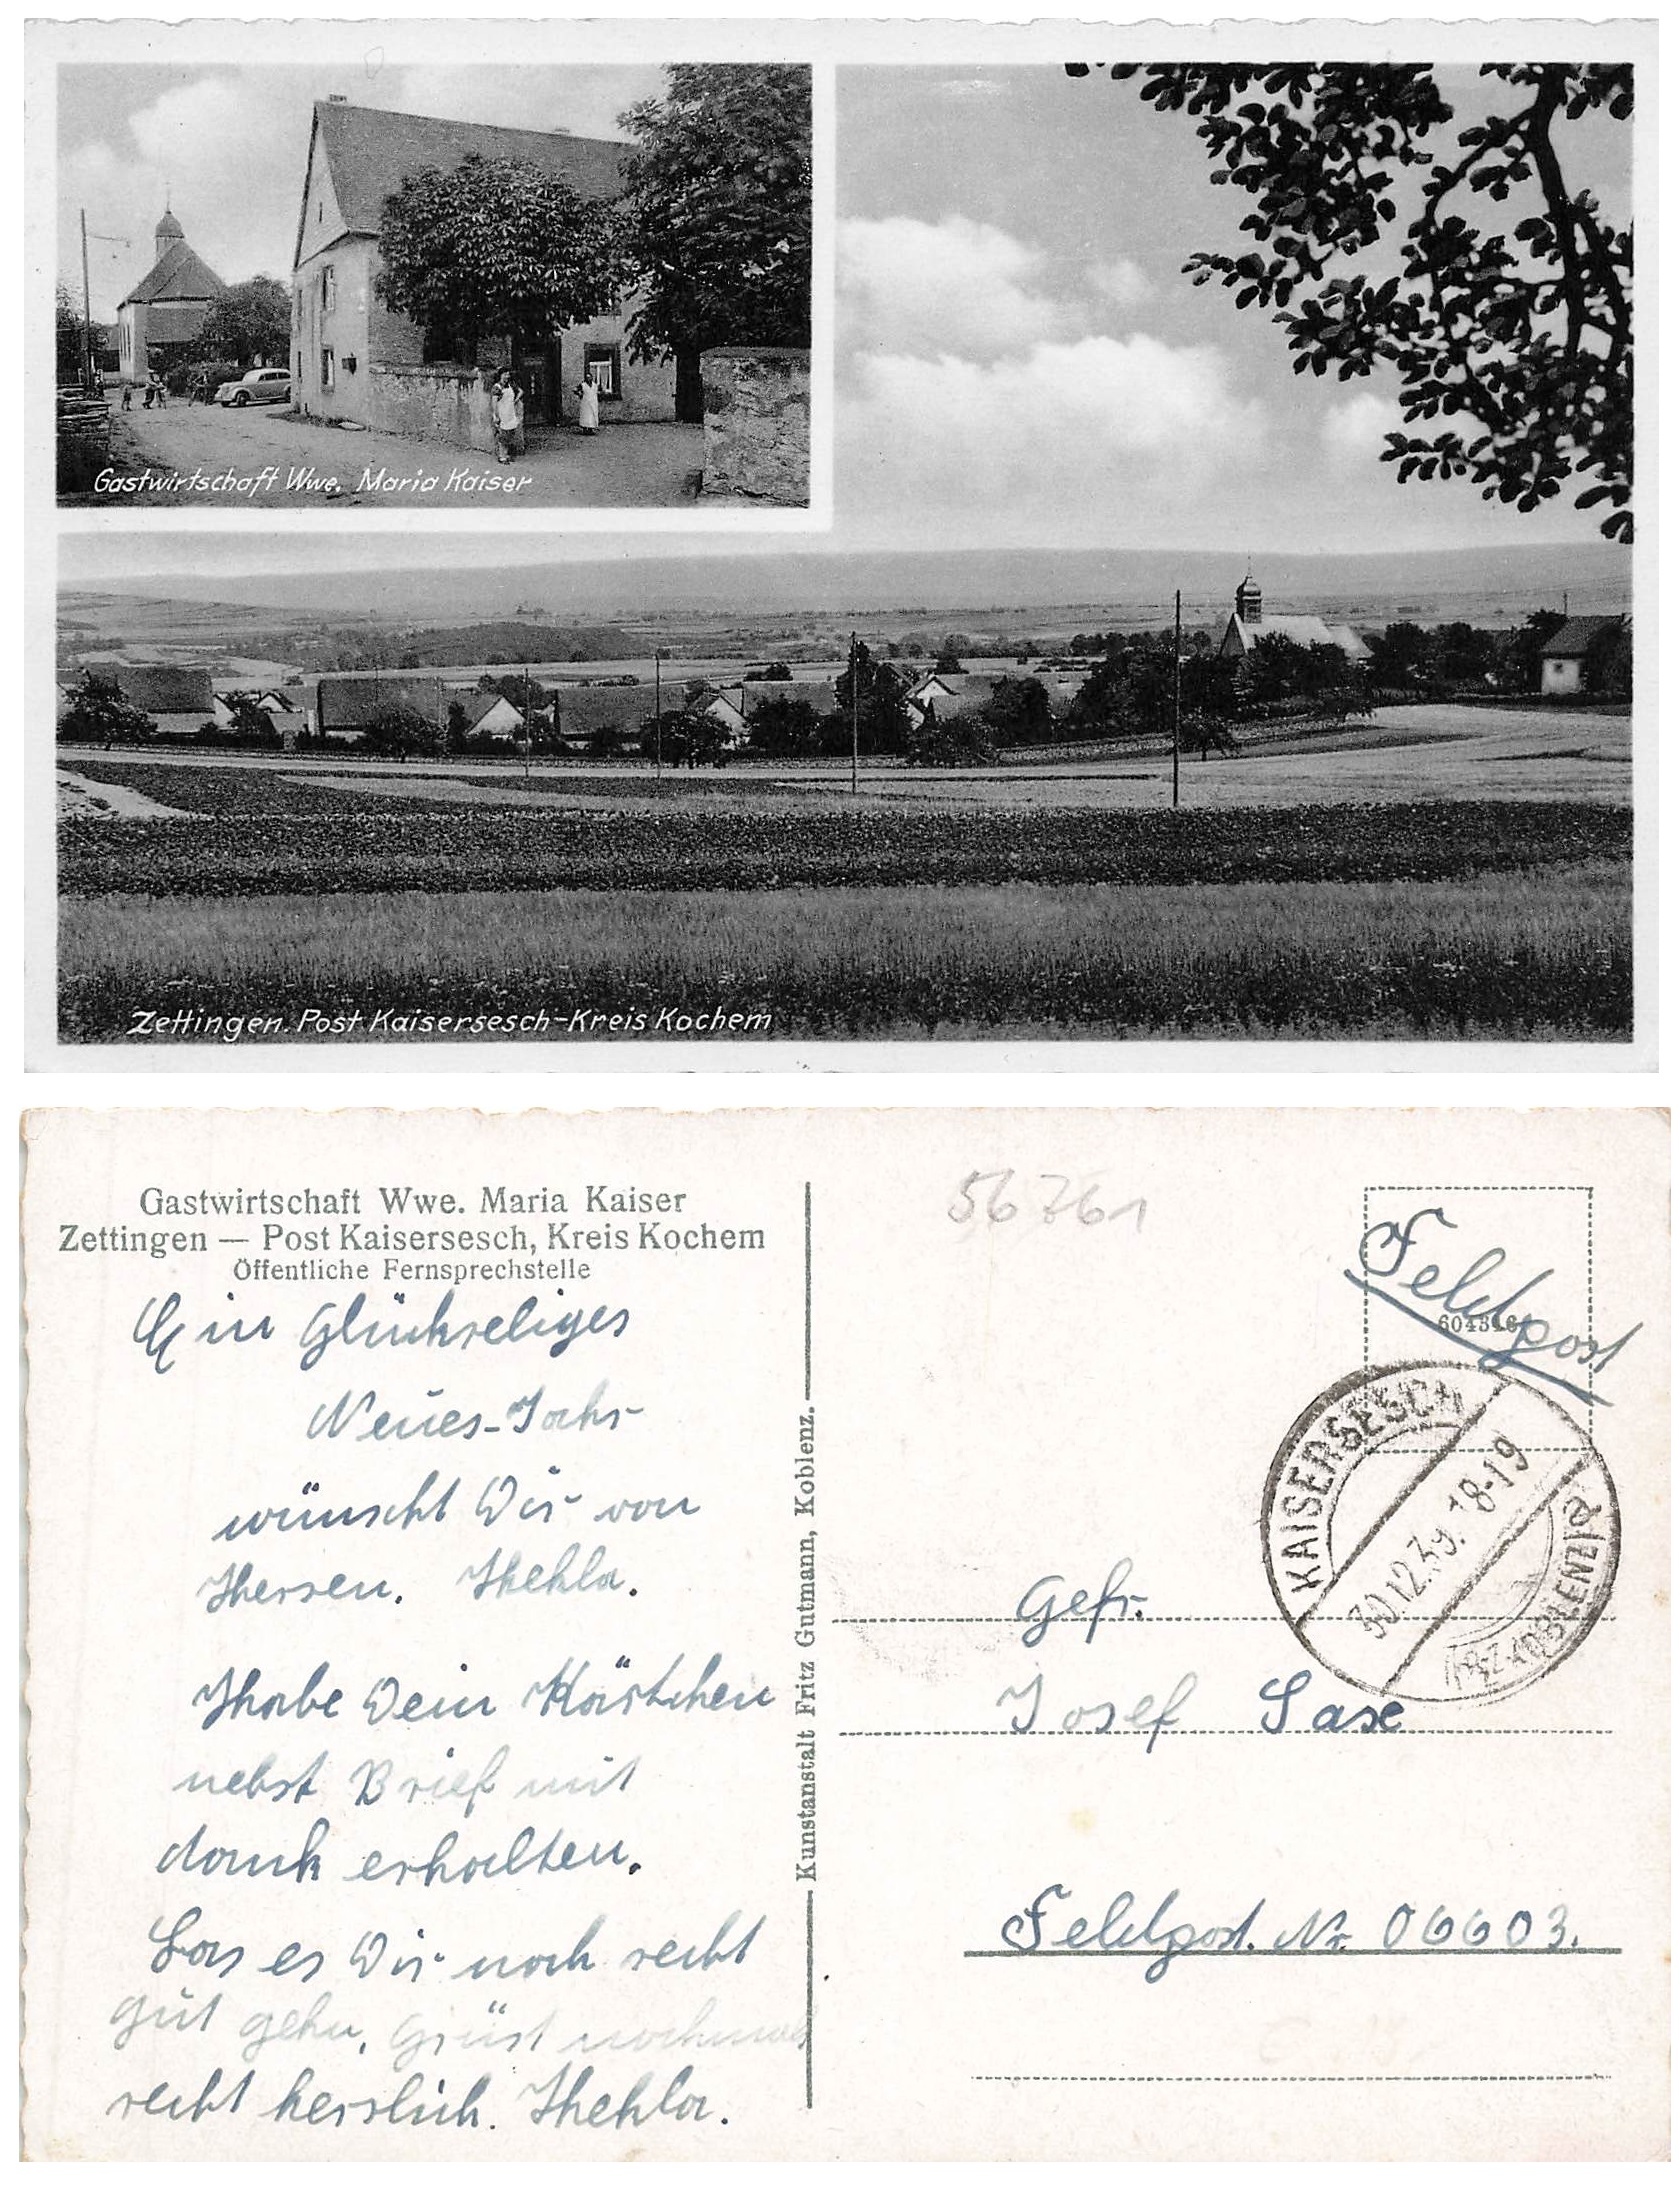 Gastwirtschaft Wwe. Maria Kaiser
Zettingen. Post Kaisersesch-Kreis Kochem
Gastwirtschaft Wwe. Maria Kaiser
Zettingen — Post Kaisersesch, Kreis Kochem
Öffentliche Fernsprechstelle
Ein Glückseliges
Neues-Jahr
wünscht Dir von
Herzen. Thekla.
Habe Dein Kärtchen
nebst Brief mit
dank erhalten.
Las es Dir noch recht
gut gehn, Grüst nochmals
recht herzlich. Thekla.
Kunstanstalt Fritz Gutmann, Koblenz.
56761
Feldpost
KAISERSESCH
30.12.39. 18-19
(BZ. KOBLENZ) a
Gefr.
Josef Sase
Feldpost. Nr. 06603.